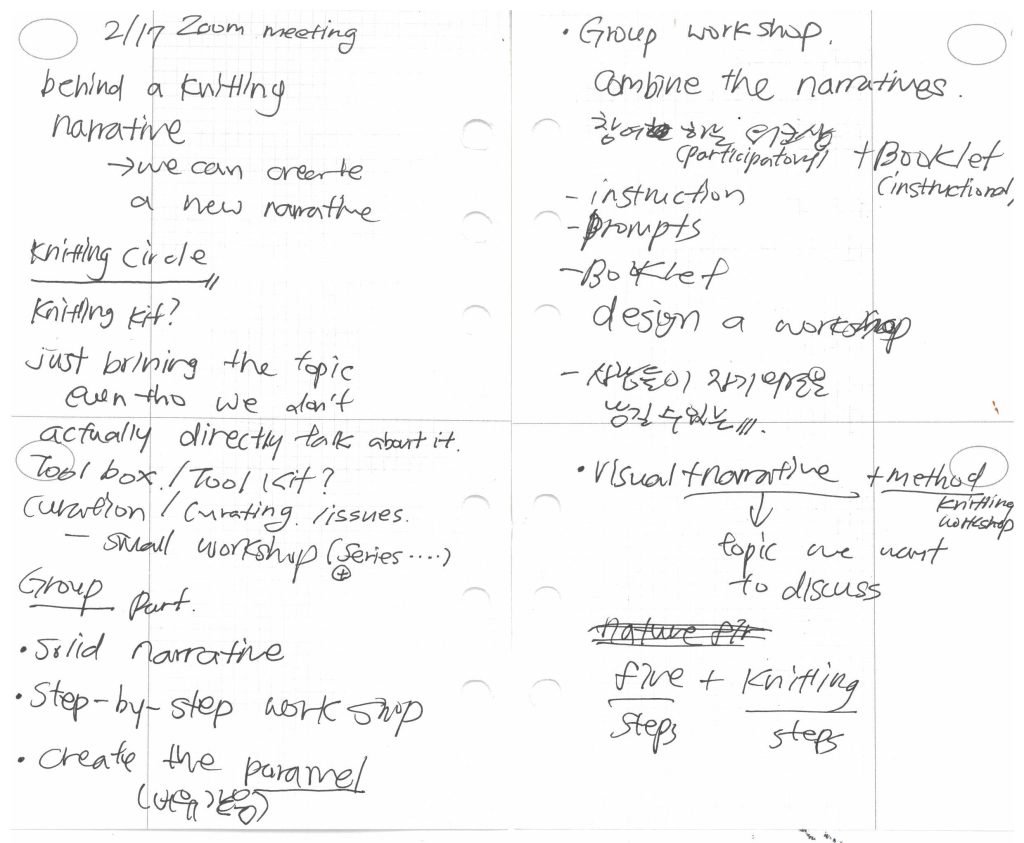 2/17 Zoom meeting
behind a knitting
narrative
→ we can create
a new narrative
Knitting circle
Knitting kit?
just brining the topic
even tho we don't
actually directly talk about it.
Tool box / Tool Kit?
Curation / Curating /issues.
- small workshop (series ....)
Group part.
• Solid narrative
• Step-by-step workshop
• Create the
• Group workshop.
combine the narratives.
참여 하는 워크샵
(participatory) + Booklet
(instructional)
- instruction
- prompts
- Booklet
design a workshop
- 사람들이 자기
수 있는 ///.
• visual + narrative + method
knitting
workshop
↓
topic we want
to discuss
five + Knitting
steps steps